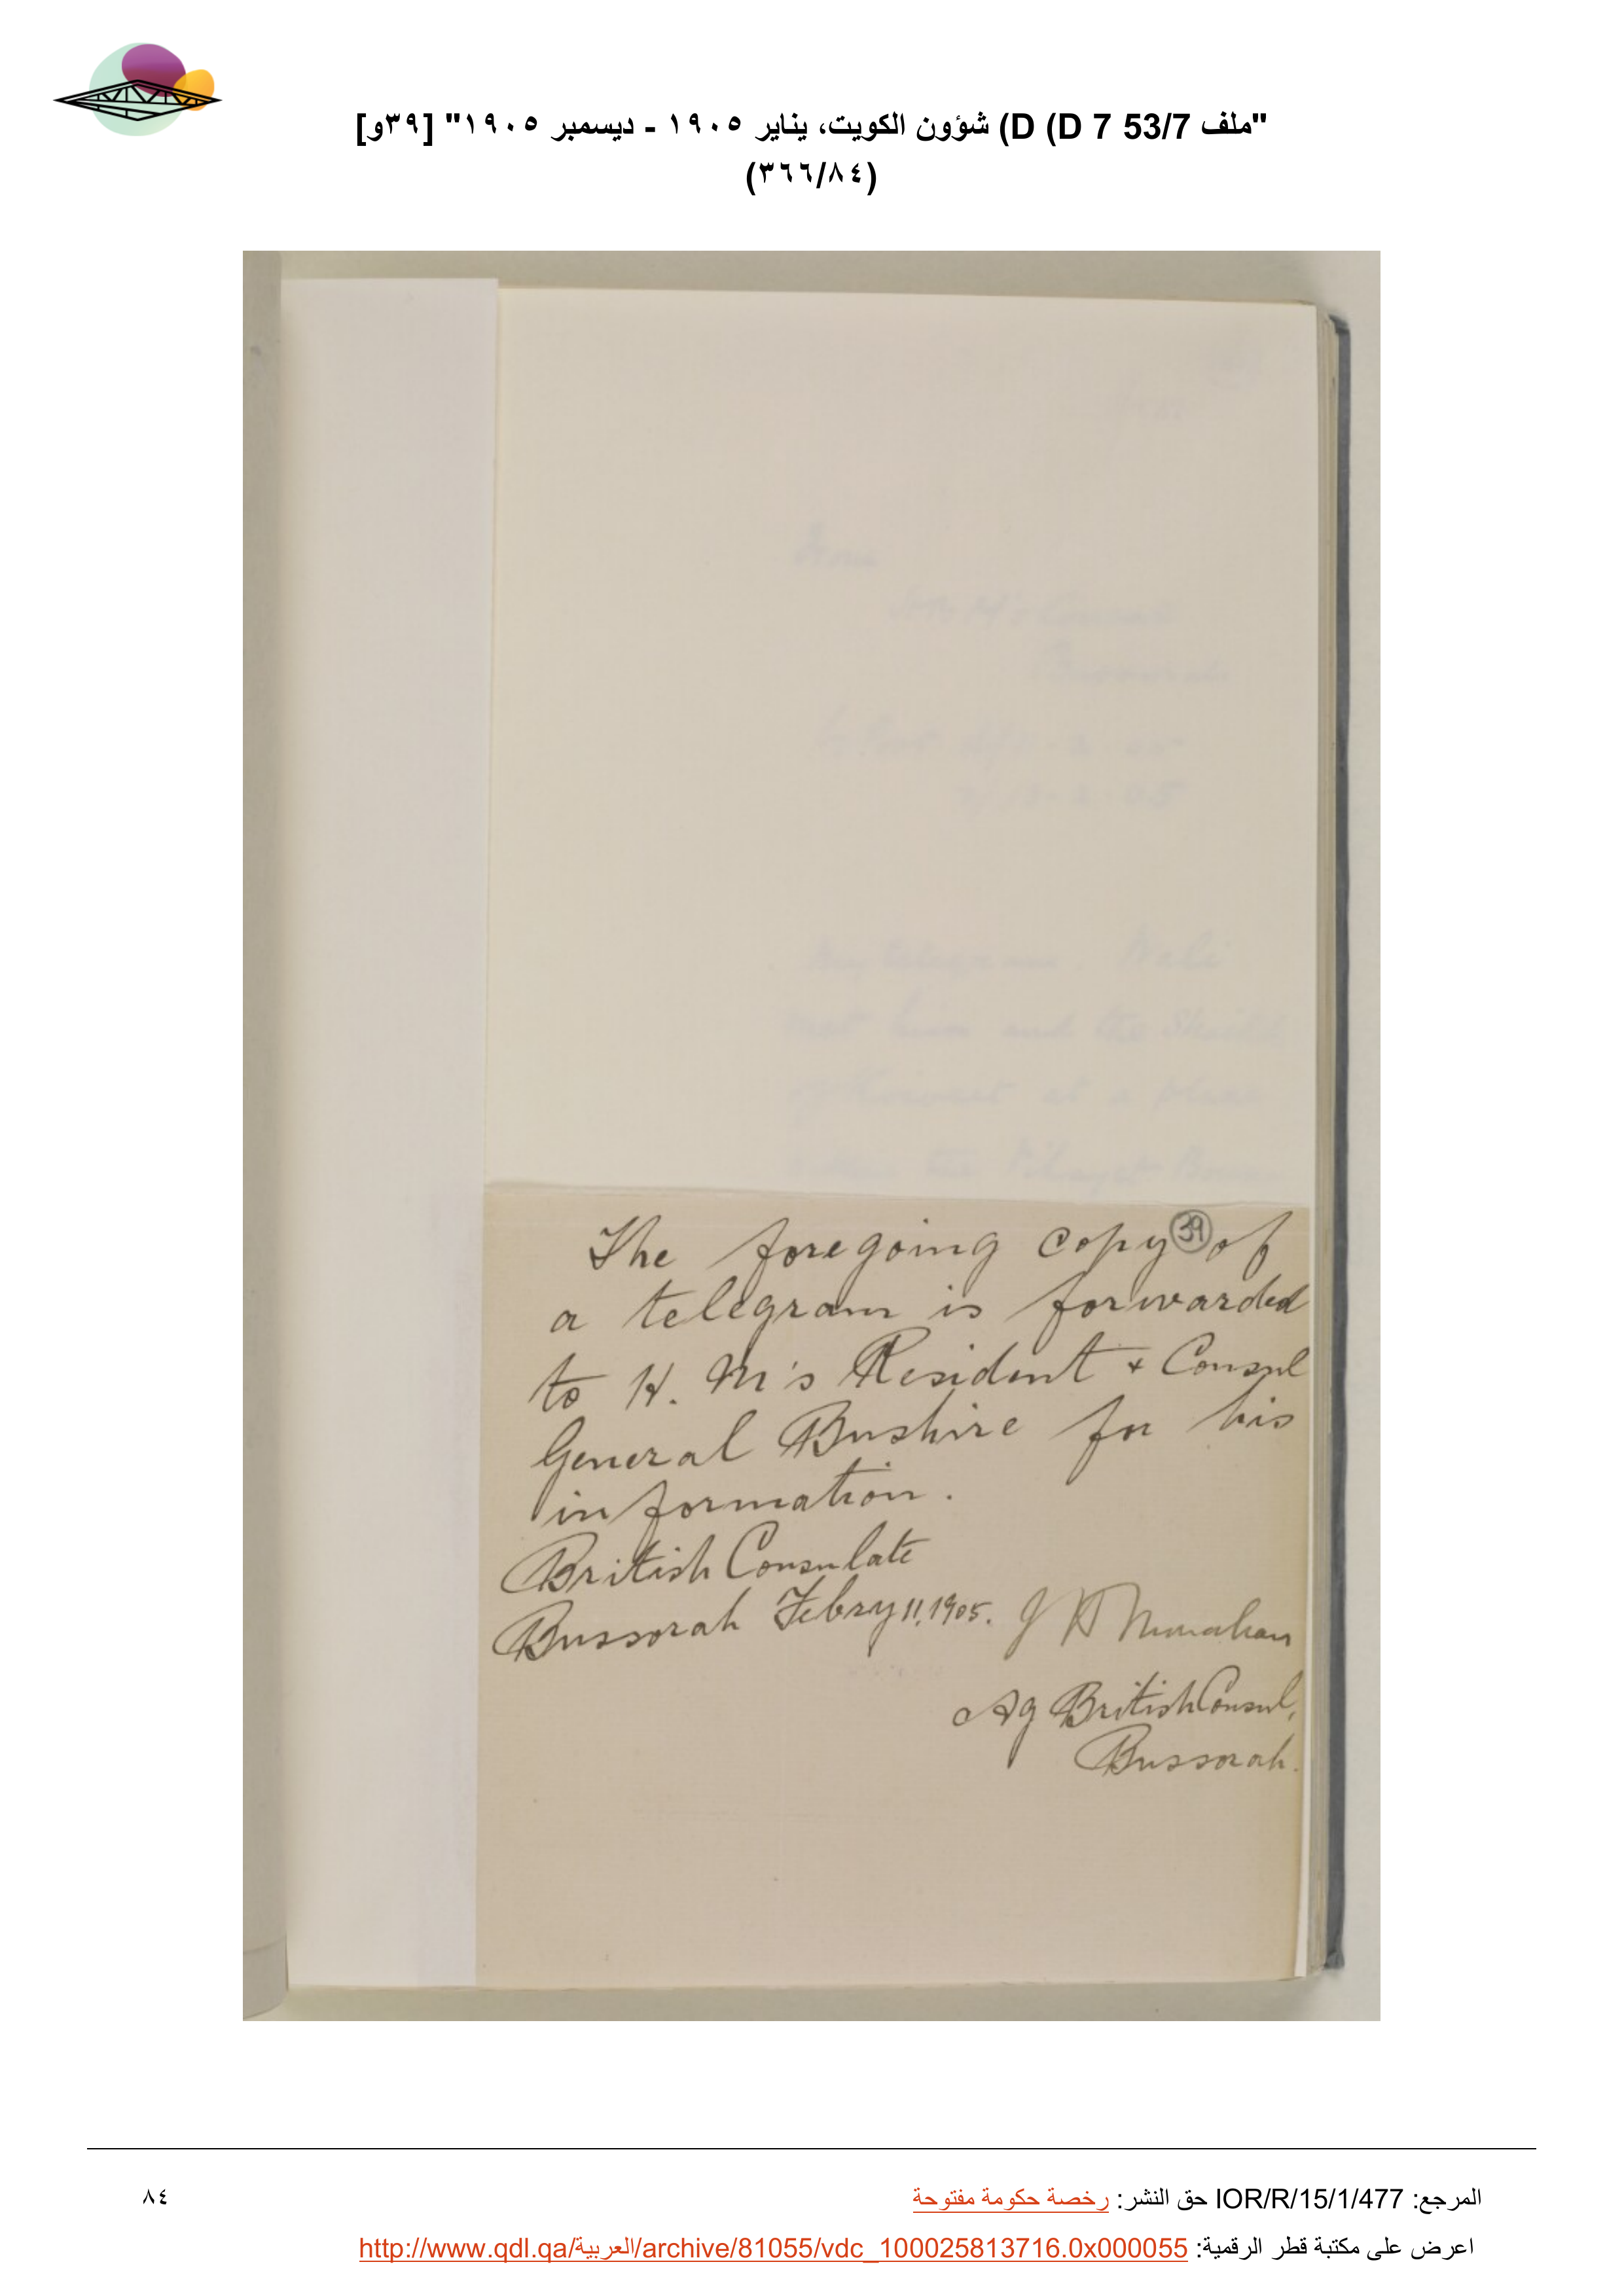 "ملف 53/7 D 7) D) شؤون الكويت، يناير ١٩٠٥ - ديسمبر ١٩٠٥" [٣٩و]
(٣٦٦/٨٤)
My telegram. Wali
and the Sheikh
at a place
the Vilayet
The foregoing copy of
39
a telegram is forwarded
to H. M's Resident + Consul
General Bushire for his
information.
British Consulate
Bussorah Febry 11, 1905. J H Monahan
Ag British Consul,
Bussorah.
المرجع: IOR/R/15/1/477 حق النشر: رخصة حكومة مفتوحة
٨٤
اعرض على مكتبة قطر الرقمية: http://www.qdl.qa/العربية/archive/81055/vdc_100025813716.0x000055